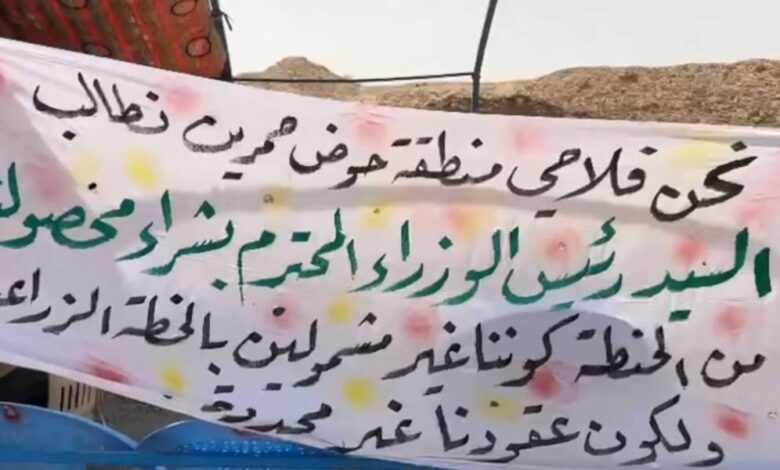 نحن فلاحي منطقة حوض حمرين نطالب
السيد رئيس الوزراء المحترم بشراء محصول
من الحنطة كوننا غير مشمولين بالخطة الزراع
ولكون عقودنا غير محددة